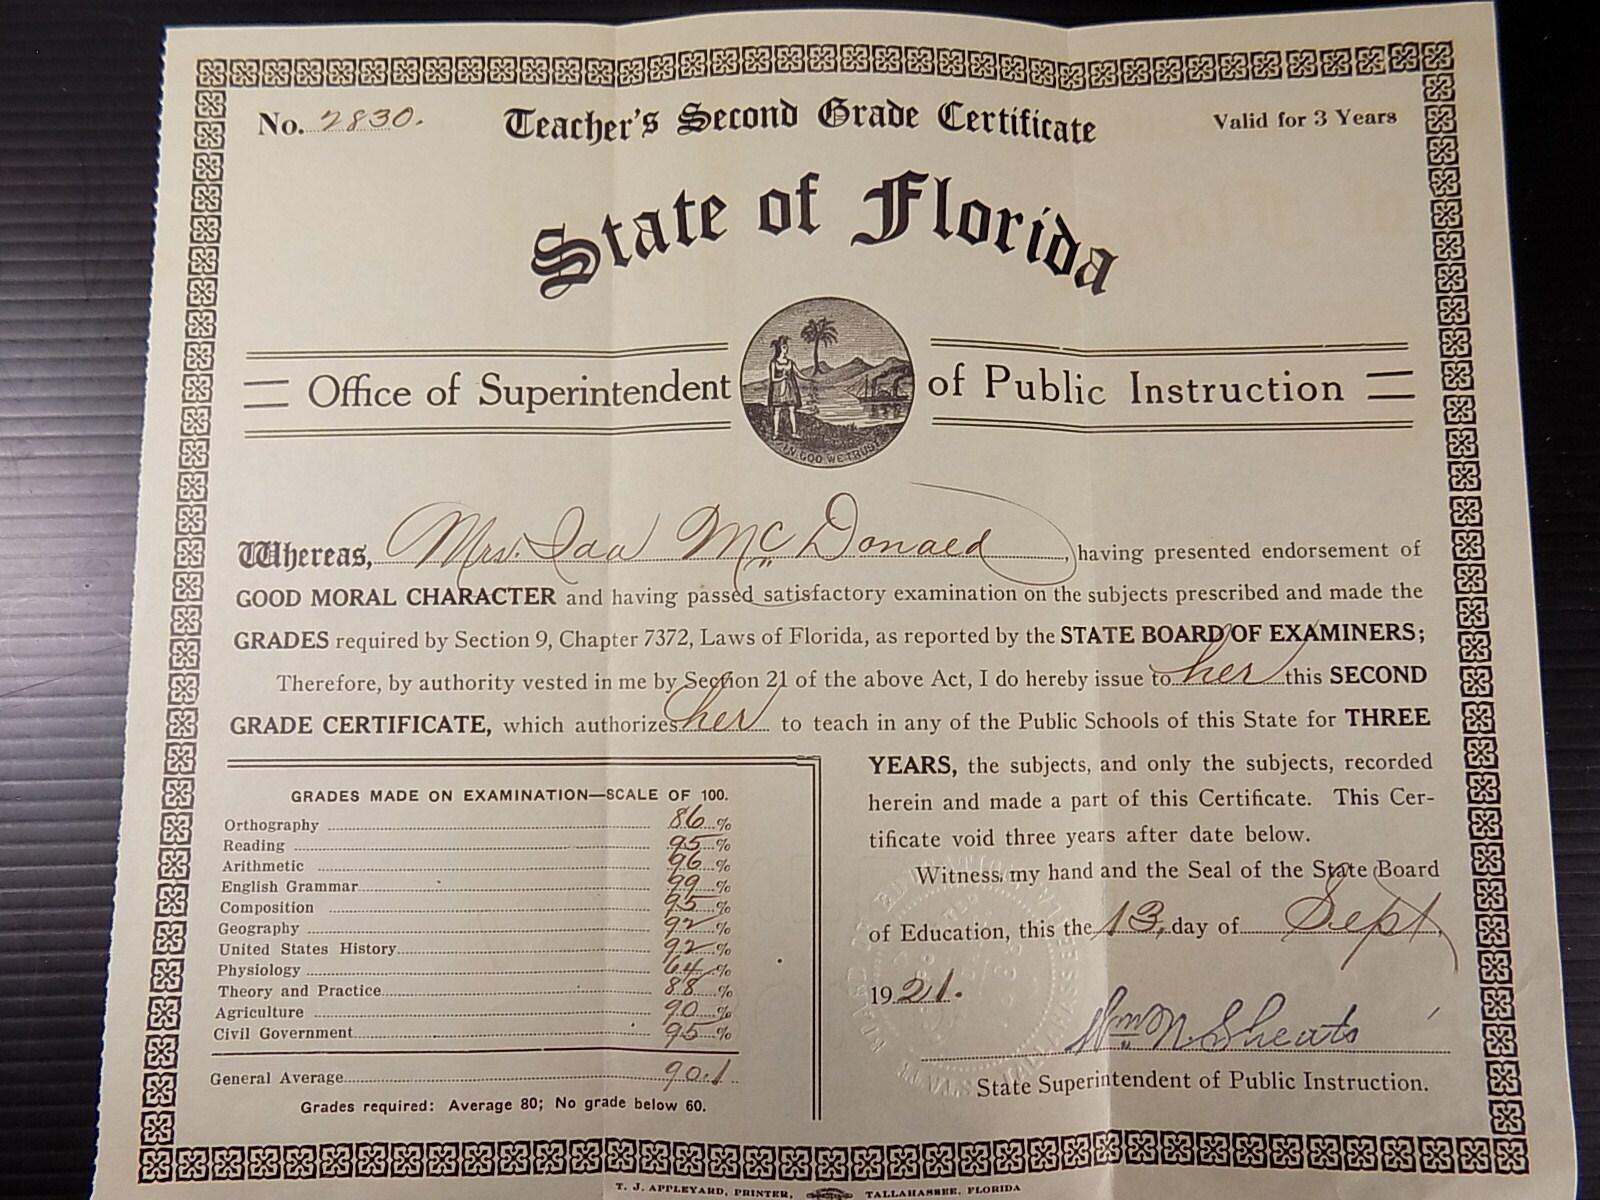 No. 2830.
Teacher's Second Grade Certificate
Valid for 3 Years
State of Florida
Office of Superintendent of Public Instruction
IN GOD WE TRUST
Whereas, Mrs. Ida McDonald, having presented endorsement of
GOOD MORAL CHARACTER and having passed satisfactory examination on the subjects prescribed and made the
GRADES required by Section 9, Chapter 7372, Laws of Florida, as reported by the STATE BOARD OF EXAMINERS;
Therefore, by authority vested in me by Section 21 of the above Act, I do hereby issue to her this SECOND
GRADE CERTIFICATE, which authorizes her to teach in any of the Public Schools of this State for THREE
YEARS, the subjects, and only the subjects, recorded
herein and made a part of this Certificate. This Cer-
tificate void three years after date below.
Witness my hand and the Seal of the State Board
of Education, this the 13, day of Sept,
1921.
Wm N. Sheats
State Superintendent of Public Instruction.
GRADES MADE ON EXAMINATION—SCALE OF 100.
Orthography 86 %
Reading 95 %
Arithmetic 96 %
English Grammar 99 %
Composition 95 %
Geography 92 %
United States History 92 %
Physiology 64 %
Theory and Practice 88 %
Agriculture 90 %
Civil Government 95 %
General Average 90.1
Grades required: Average 80; No grade below 60.
T. J. APPLEYARD, PRINTER, TALLAHASSEE, FLORIDA